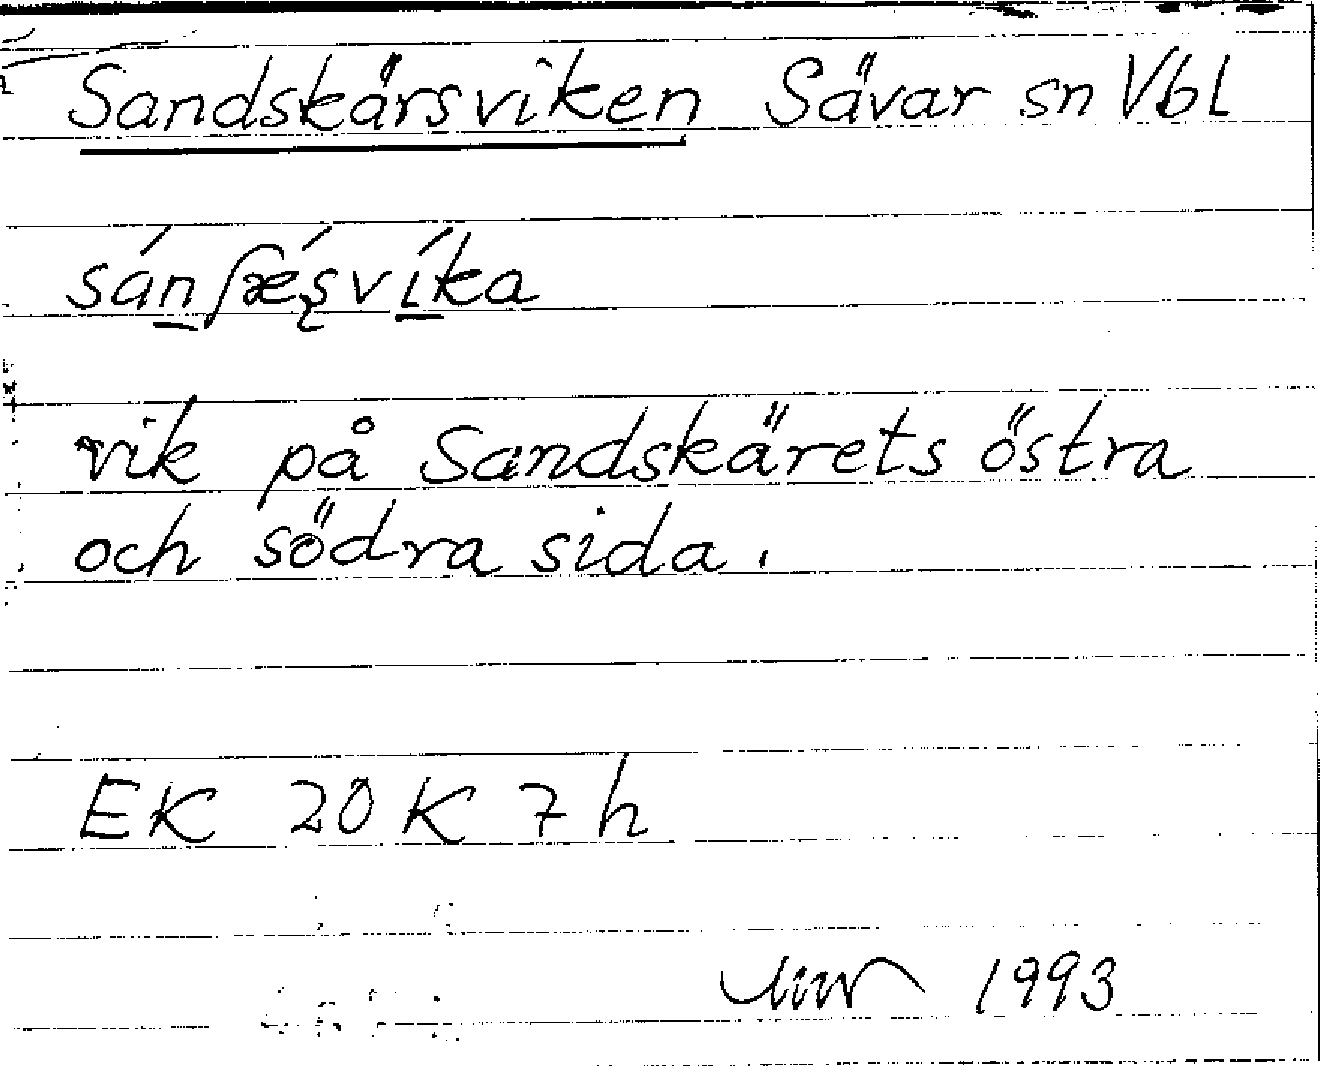 Sandskärsviken Sävar sn Vbl
sánʃǽʂvíka
vik på Sandskärets östra
och södra sida.
EK 20K 7h
1993